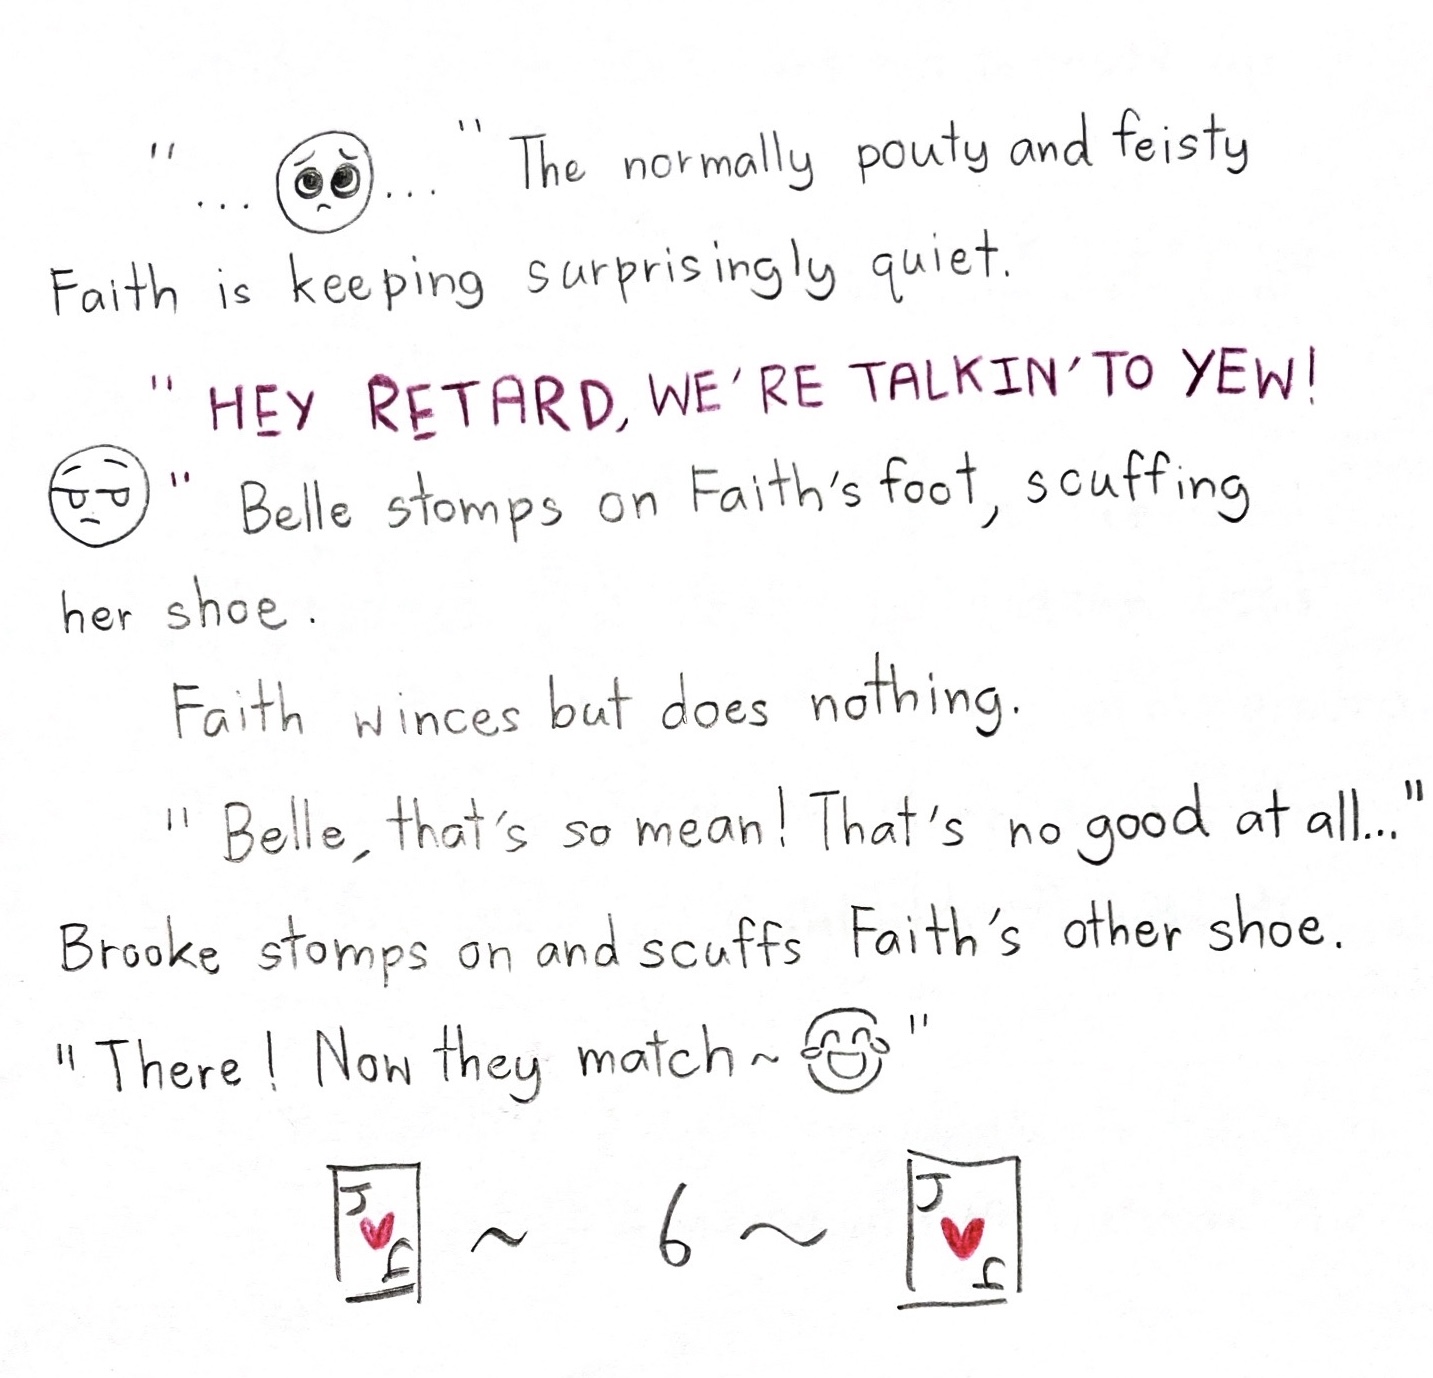 "...🥺..." The normally pouty and feisty
Faith is keeping surprisingly quiet.
"HEY RETARD, WE'RE TALKIN' TO YEW!
😒" Belle stomps on Faith's foot, scuffing
her shoe.
Faith winces but does nothing.
"Belle, that's so mean! That's no good at all..."
Brooke stomps on and scuffs Faith's other shoe.
"There! Now they match~ 😂"
J ♥ J ~ 6 ~ J ♥ J